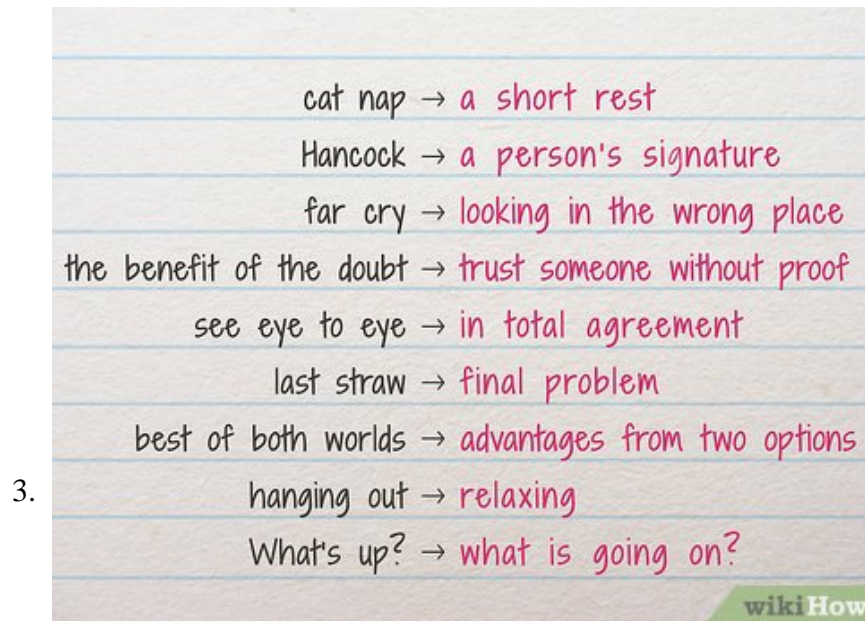 cat nap → a short rest
Hancock → a person's signature
far cry → looking in the wrong place
the benefit of the doubt → trust someone without proof
see eye to eye → in total agreement
last straw → final problem
best of both worlds → advantages from two options
3. hanging out → relaxing
What's up? → what is going on?
wikiHow